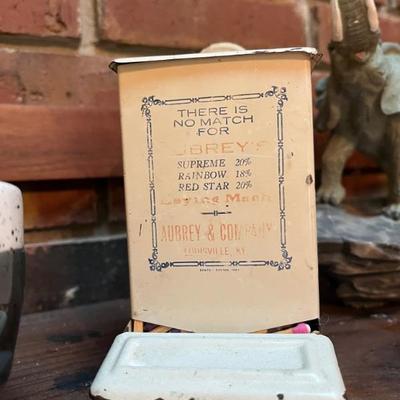 THERE IS
NO MATCH
FOR
UBREY'S
SUPREME 20%
RAINBOW 18%
RED STAR 20%
Laying Mash
AUBREY & COMPANY
LOUISVILLE, KY.